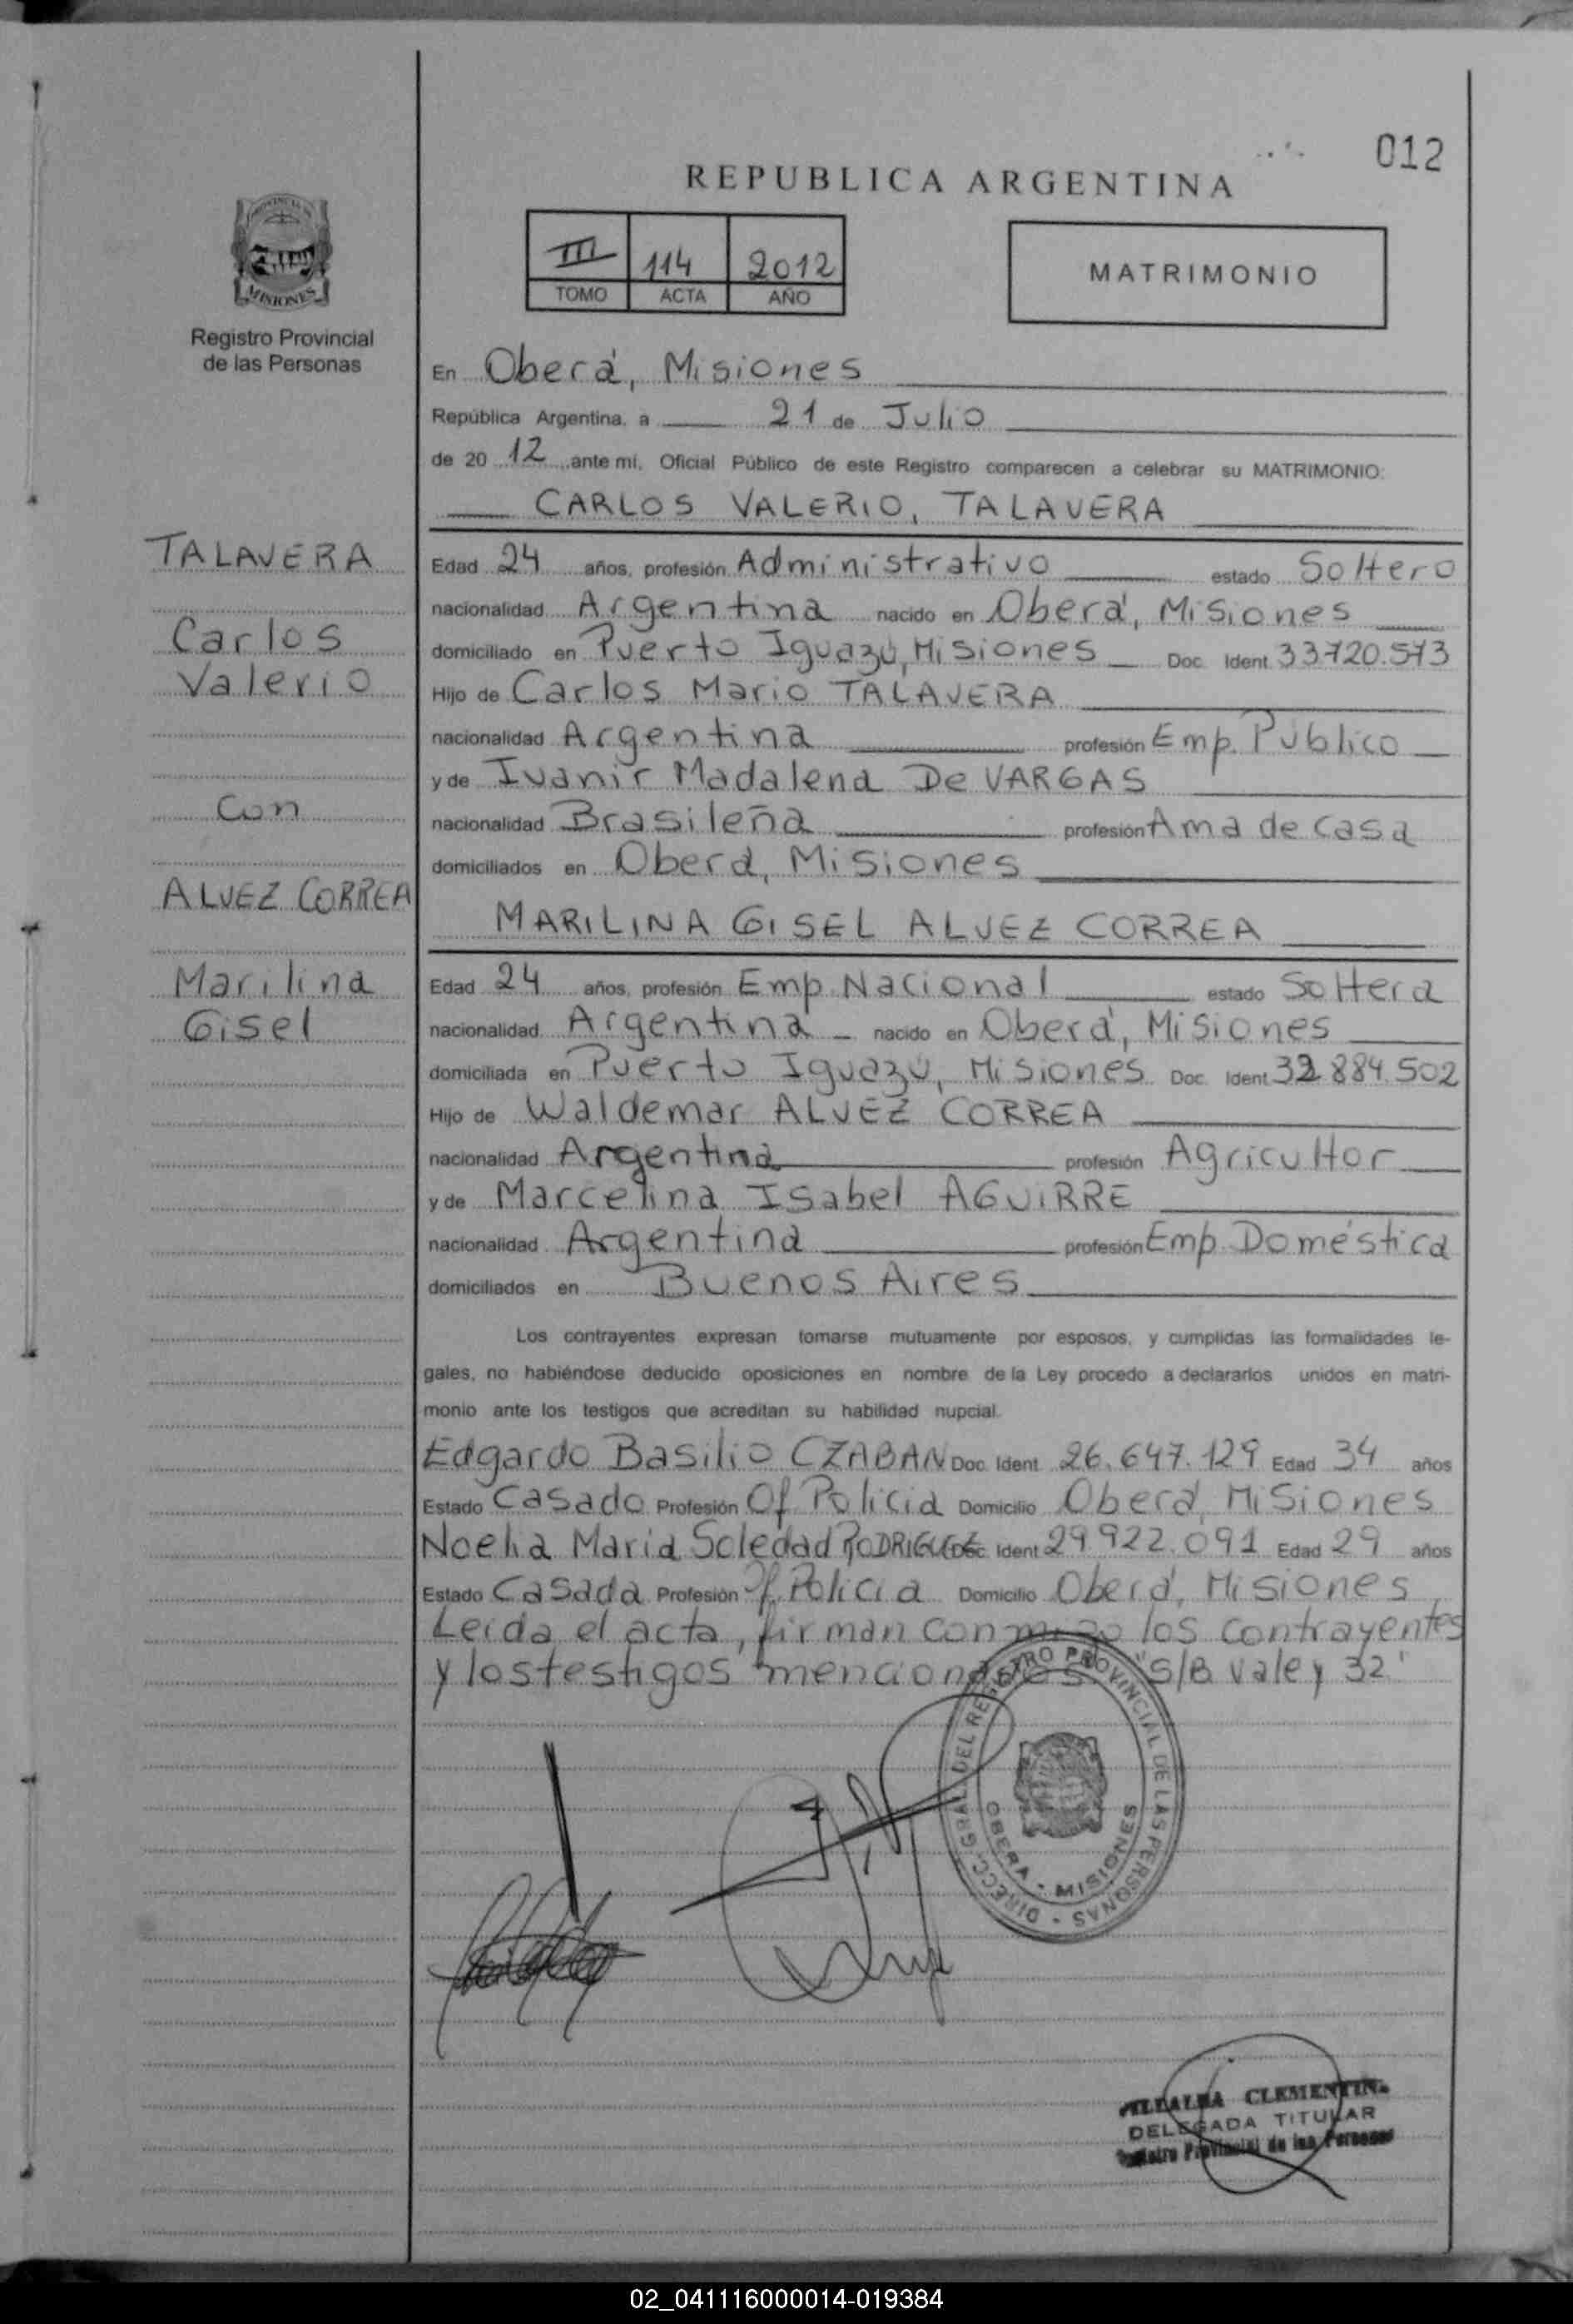 012
REPUBLICA ARGENTINA
III 114 2012
TOMO ACTA AÑO
MATRIMONIO
PROVINCIA DE
MISIONES
Registro Provincial
de las Personas
En Oberá, Misiones
República Argentina, a 21 de Julio
de 20 12 ante mí, Oficial Público de este Registro comparecen a celebrar su MATRIMONIO:
CARLOS VALERIO, TALAVERA
TALAVERA
Carlos
Valerio
Con
ALVEZ CORREA
Marilina
Gisel
Edad 24 años, profesión Administrativo estado Soltero
nacionalidad Argentina nacido en Oberá, Misiones
domiciliado en Puerto Iguazú, Misiones Doc. Ident. 33.720.573
Hijo de Carlos Mario TALAVERA
nacionalidad Argentina profesión Emp. Publico
y de Ivanir Madalena De VARGAS
nacionalidad Brasileña profesión Ama de casa
domiciliados en Oberá, Misiones
MARILINA GISEL ALVEZ CORREA
Edad 24 años, profesión Emp. Nacional estado Soltera
nacionalidad Argentina nacido en Oberá, Misiones
domiciliada en Puerto Iguazú, Misiones Doc. Ident. 32.884.502
Hijo de Waldemar ALVEZ CORREA
nacionalidad Argentina profesión Agricultor
y de Marcelina Isabel AGUIRRE
nacionalidad Argentina profesión Emp. Doméstica
domiciliados en Buenos Aires
Los contrayentes expresan tomarse mutuamente por esposos, y cumplidas las formalidades le-
gales, no habiéndose deducido oposiciones en nombre de la Ley procedo a declararlos unidos en matri-
monio ante los testigos que acreditan su habilidad nupcial.
Edgardo Basilio CZABAN Doc. Ident. 26.647.129 Edad 34 años
Estado Casado Profesión Of Policia Domicilio Oberá, Misiones
Noelia Maria Soledad RODRIGUEZ Doc. Ident. 29.922.091 Edad 29 años
Estado Casada Profesión Of. Policia Domicilio Oberá, Misiones
Leida el acta, firman conmigo los contrayentes
y los testigos mencionados. "S/B vale y 32"
DIRECC. GRAL. DEL REGISTRO PROVINCIAL DE LAS PERSONAS
OBERA - MISIONES
VILLALBA CLEMENTINA
DELEGADA TITULAR
Registro Provincial de las Personas
02_041116000014-019384